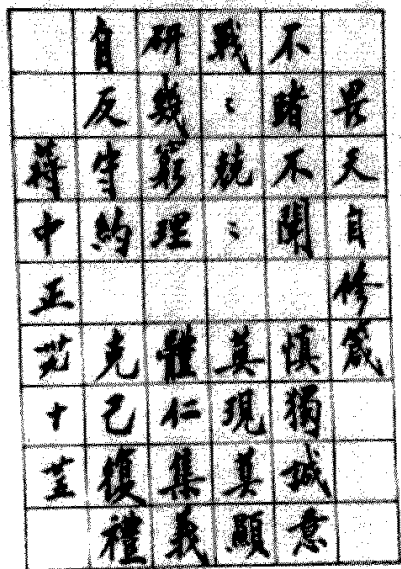 畏天自修箴
不睹不聞 慎獨誠意
戰〻兢〻 莫現莫顯
研幾窮理 體仁集義
自反守約 克己復禮
蔣中正 廿九 十 廿五